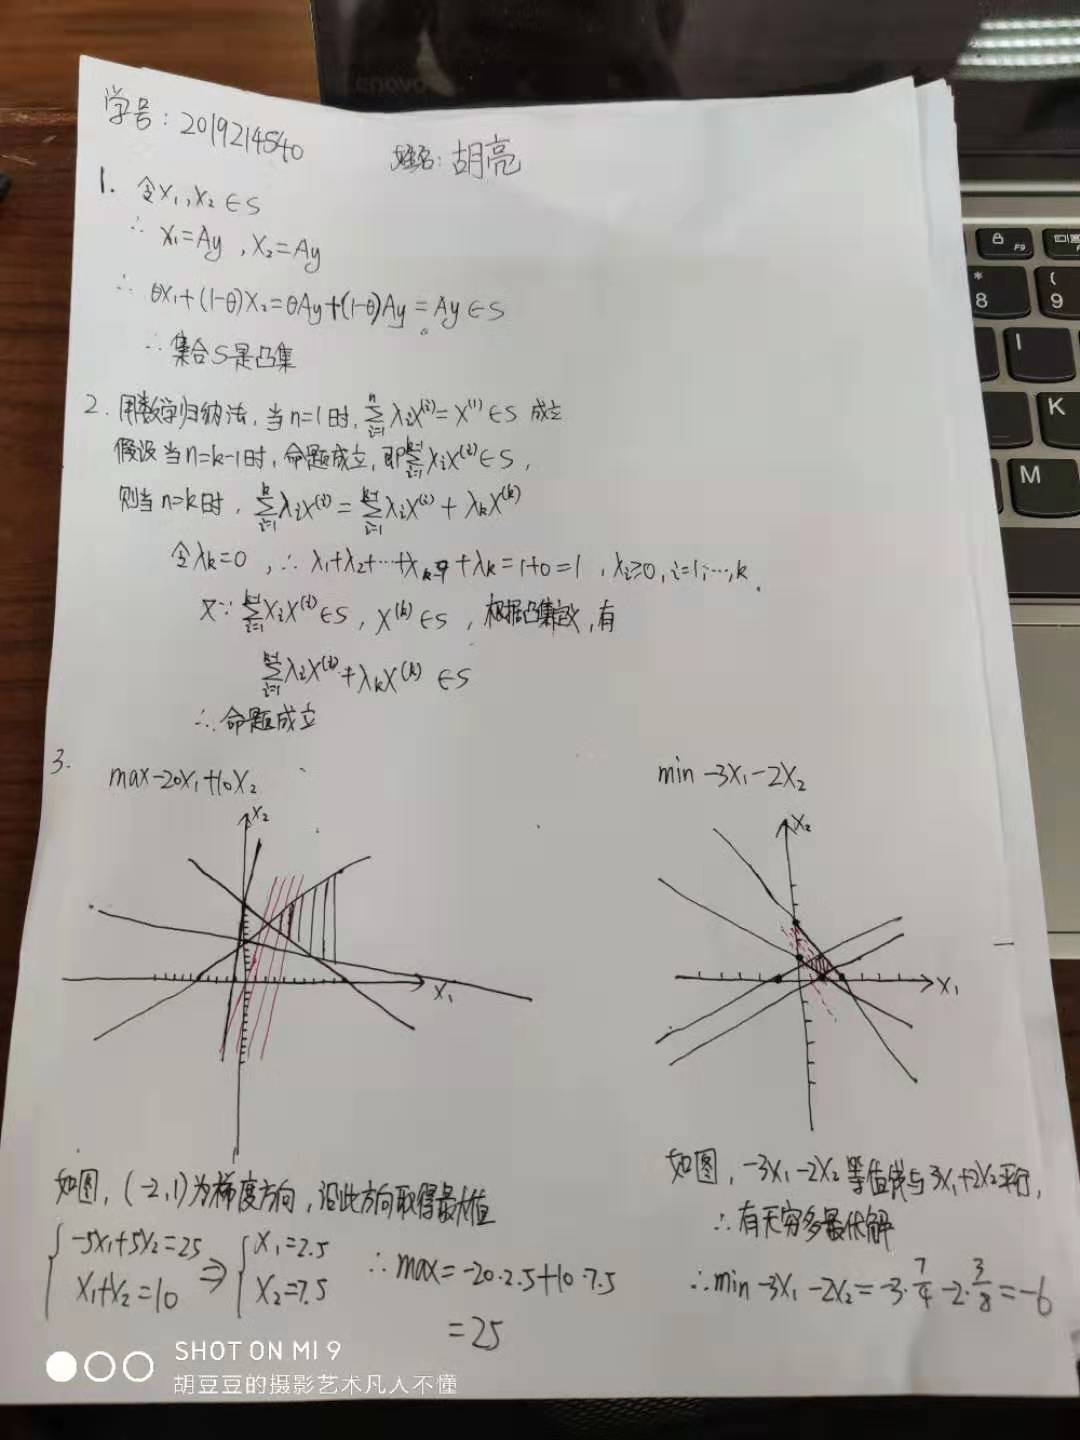 lenovo
学号: 2019214540
姓名: 胡亮
1. 令X₁,X₂∈S
∴ X₁=Ay , X₂=Ay
∴ θX₁+(1-θ)X₂=θAy+(1-θ)Ay=Ay∈S
∴集合S是凸集
2. 用数学归纳法, 当n=1时, ∑ᵢ₌₁ⁿ λᵢX⁽ⁱ⁾= X⁽¹⁾∈S 成立
假设当n=k-1时, 命题成立, 即∑ᵢ₌₁ᵏ⁻¹ λᵢX⁽ⁱ⁾∈S,
则当n=k时, ∑ᵢ₌₁ᵏ λᵢX⁽ⁱ⁾ = ∑ᵢ₌₁ᵏ⁻¹ λᵢX⁽ⁱ⁾ + λₖX⁽ᵏ⁾
令λₖ=0 , ∴ λ₁+λ₂+…+λₖ₋₁+λₖ=1+0=1 , λᵢ≥0, i=1,…,k.
又∵ ∑ᵢ₌₁ᵏ⁻¹ λᵢX⁽ⁱ⁾∈S, X⁽ᵏ⁾∈S , 根据凸集定义, 有
∑ᵢ₌₁ᵏ⁻¹ λᵢX⁽ⁱ⁾+λₖX⁽ᵏ⁾ ∈S
∴ 命题成立
3. max-20X₁+10X₂
min -3X₁-2X₂
X₂
X₁
X₂
X₁
如图, (-2,1)为梯度方向, 沿此方向取得最大值
{-5X₁+5X₂=25
X₁+X₂=10
⇒ {X₁=2.5
X₂=7.5
∴ max=-20·2.5+10·7.5
=25
如图, -3X₁-2X₂等值线与3X₁+2X₂平行,
∴有无穷多最优解
∴min -3X₁-2X₂=-3·7/4-2·3/8=-6
F9
*
8
(
9
I
K
M
SHOT ON MI 9
胡豆豆的摄影艺术凡人不懂